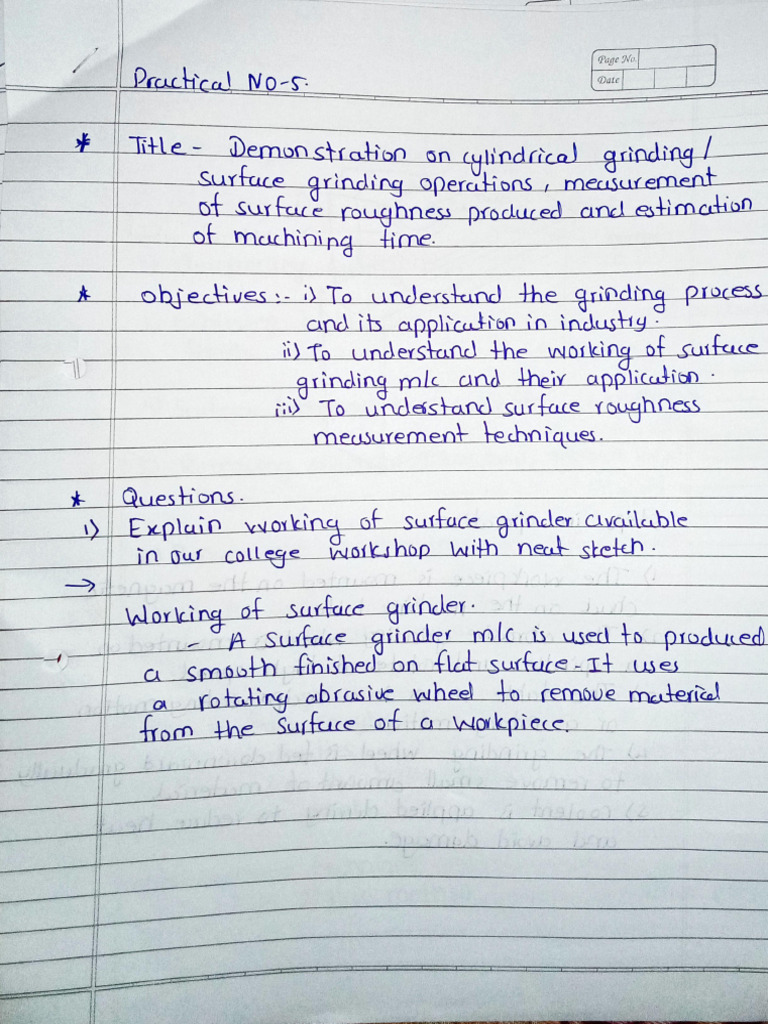 Page No.
Date
Practical NO-5.
* Title - Demonstration on cylindrical grinding /
surface grinding operations, measurement
of surface roughness produced and estimation
of machining time.
* objectives :- i) To understand the grinding process
and its application in industry.
ii) To understand the working of surface
grinding m/c and their application.
iii) To understand surface roughness
measurement techniques.
* Questions.
1) Explain working of surface grinder available
in our college workshop with neat sketch.
→
Working of surface grinder.
- A surface grinder m/c is used to produced
a smooth finished on flat surface - It uses
a rotating abrasive wheel to remove material
from the surface of a workpiece.